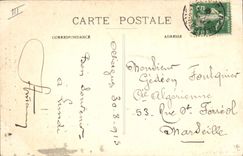 CARTE POSTALE
CORRESPONDANCE
ADRESSE
30-8-1913
Bon Souvenir
à lundi
Monsieur
Gédéon Foulquier
Cie Algérienne
53, Rue St Ferréol
Marseille